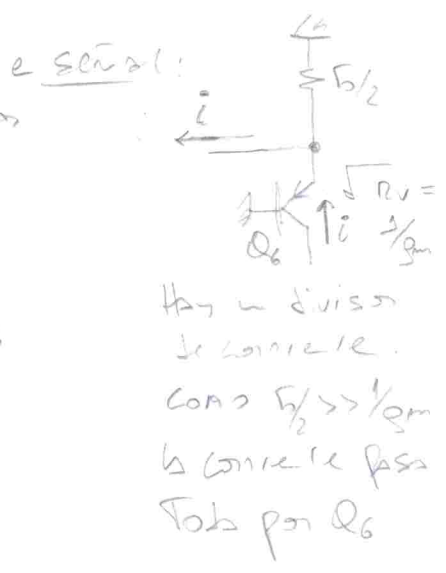 e señal:
r₀/2
i
Rv =
1/gm
i
Q₆
Hay un divisor
de corriente.
como r₀/2 >> 1/gm
la corriente pasa
Toda por Q₆